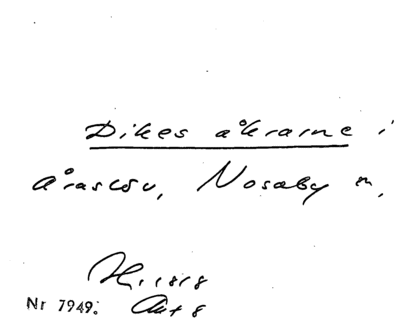 Dikes åkrarne i
Åraslöv, Nosaby
1818
Nr 7949. Akt 8